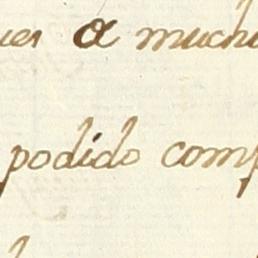 ues a mucho
podido comp